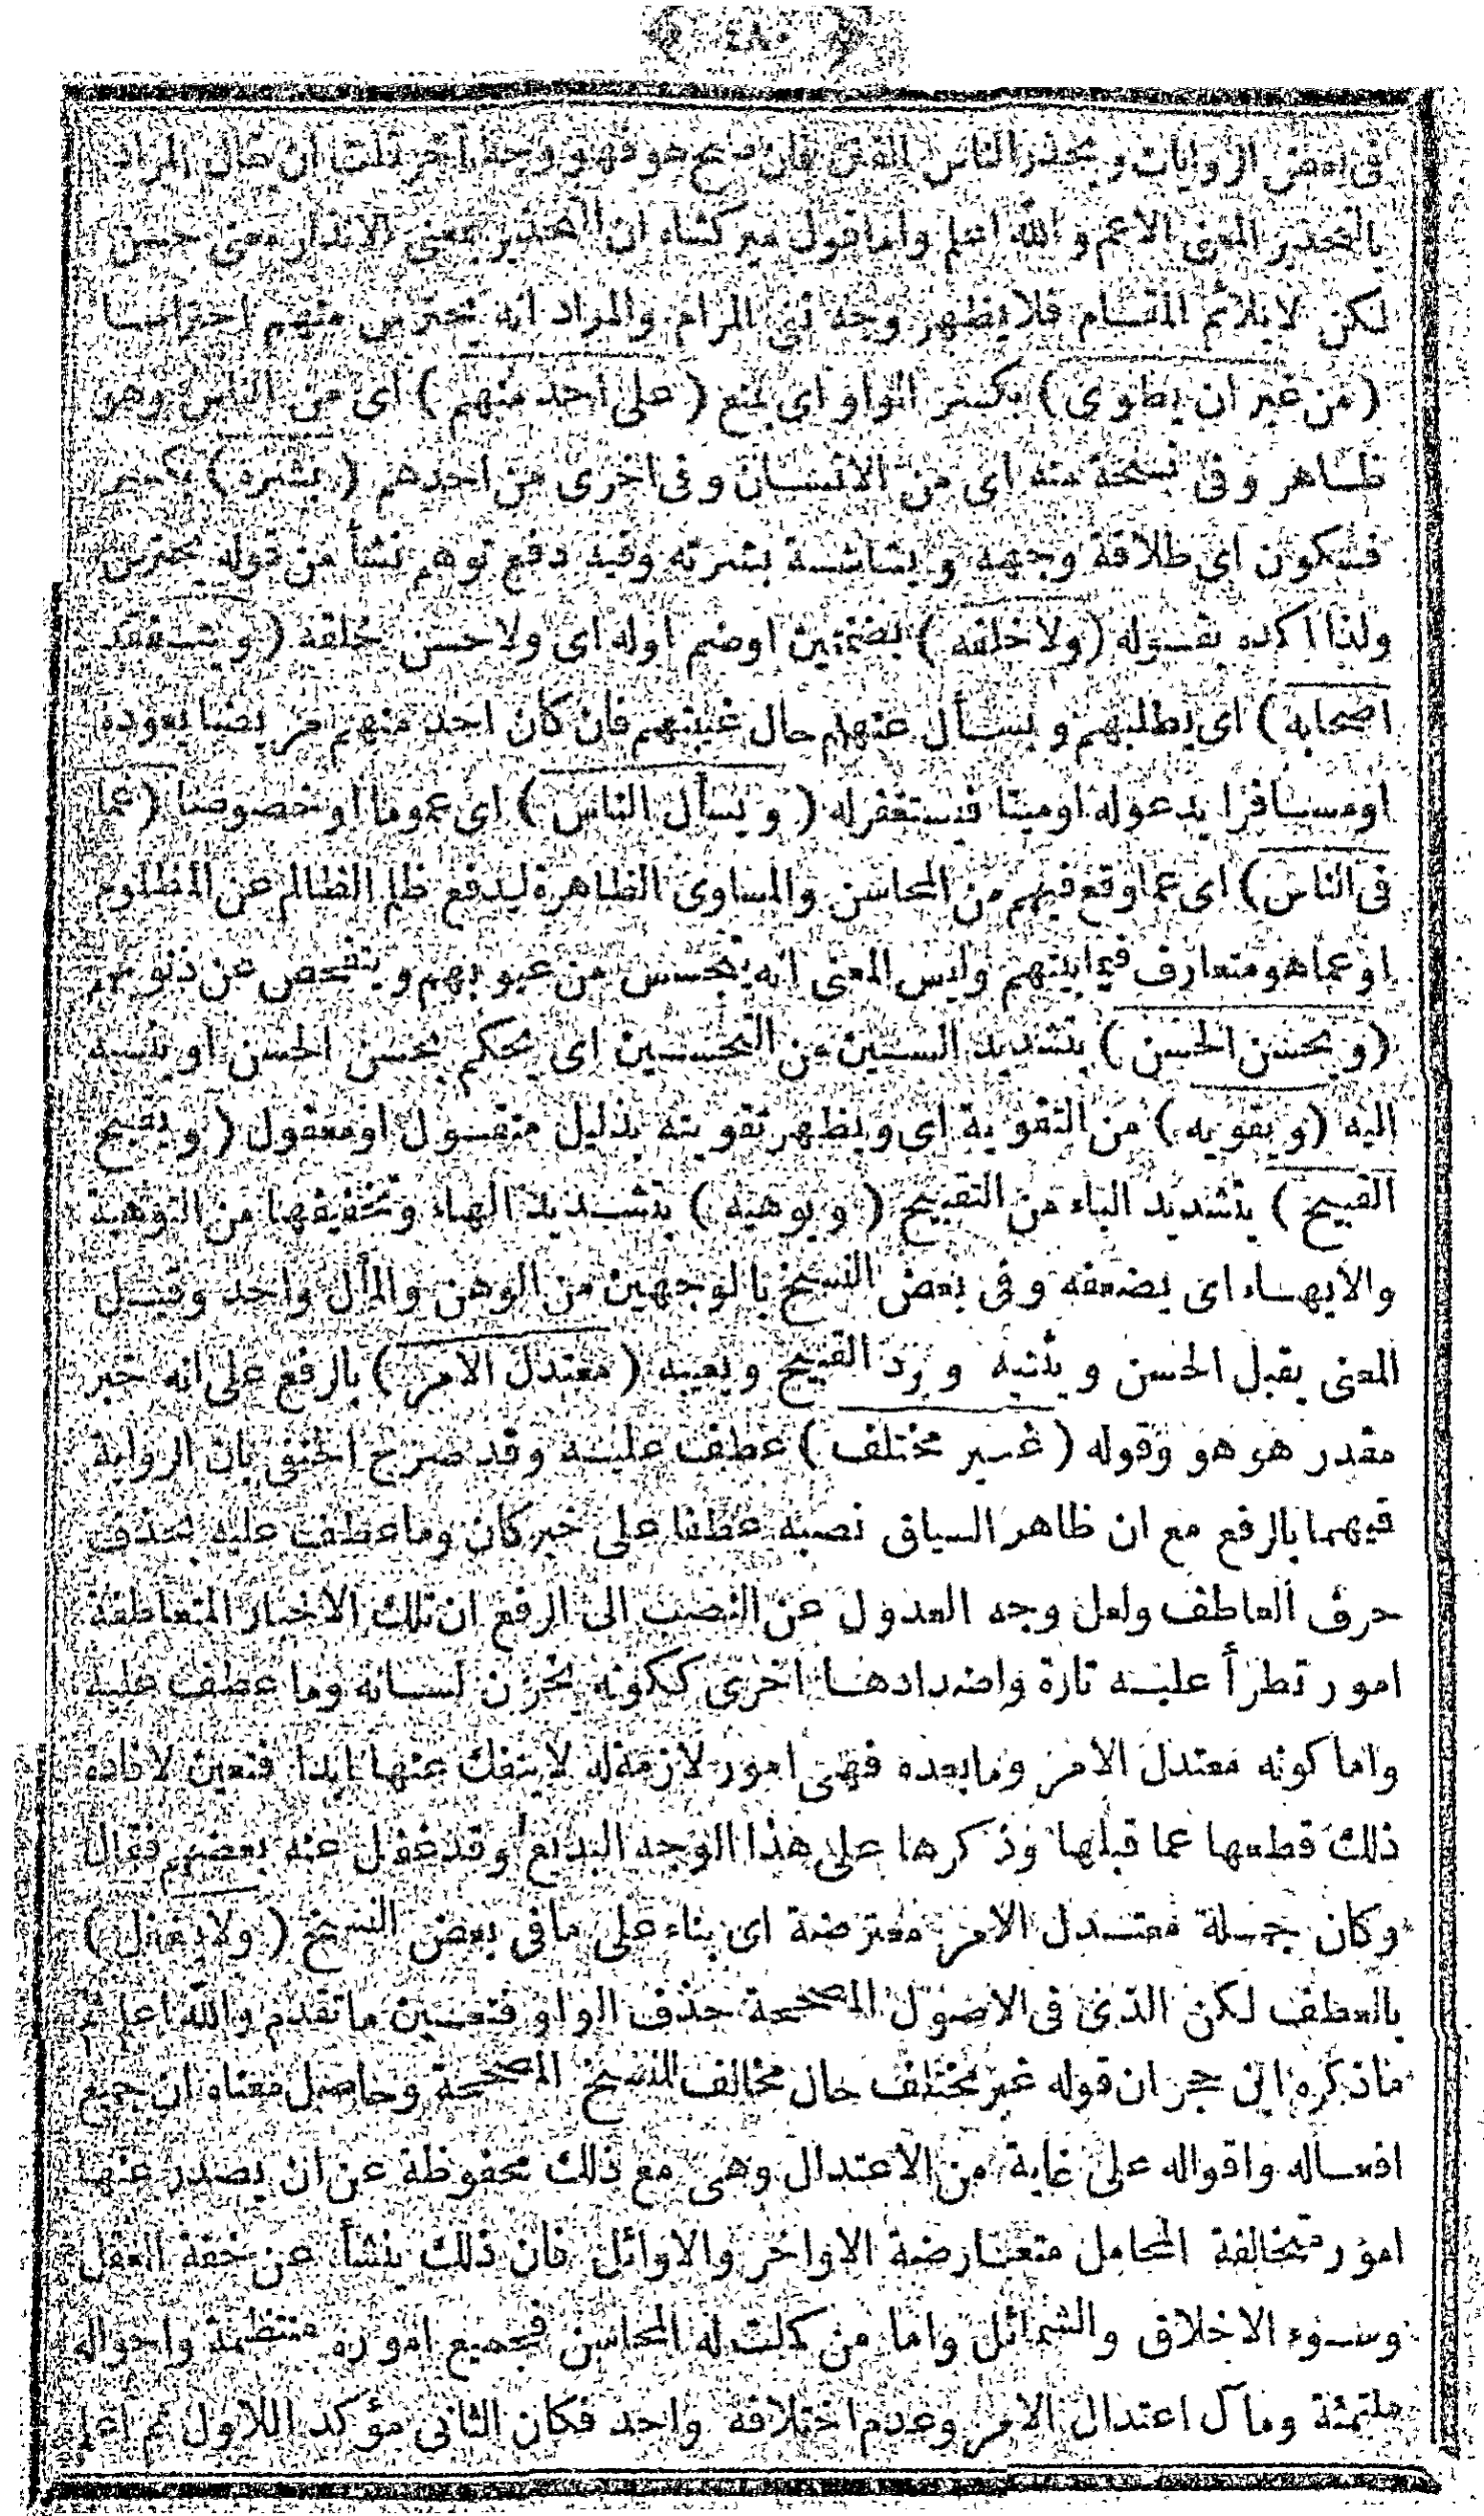 ﴿ ٤٨٠ ﴾
فى بعض الروايات ويحذر الناس الفتن فان صح فهو وجه آخر قلت ان كان المراد
بالتحذير المعنى الاعم والله اعلم واما قول ميركشاه ان التحذير بمعنى الانذار معنى حسن
لكن لا يلائم المقام فلا يظهر وجه نفى المرام والمراد انه يحترس منهم احتراسا
(من غير ان يطوى) بكسر الواو اى يمنع (على احد منهم) اى من الناس وهو
ظاهر وفى نسخة منه اى من الانسان وفى اخرى من احدهم (بشره) بكسر
فسكون اى طلاقة وجهه وبشاشة بشرته وفيه دفع توهم نشأ من قوله يحترس
ولذا اكده بقوله (ولا خلقه) بضمتين او ضم اوله اى ولا حسن خلقه (ويتفقد
اصحابه) اى يطلبهم ويسأل عنهم حال غيبتهم فان كان احد منهم مريضا يعوده
او مسافرا يدعو له او ميتا فيستغفر له (ويسأل الناس) اى عموما او خصوصا (عما
فى الناس) اى عما وقع فيهم من المحاسن والمساوى الظاهرة ليدفع ظلم الظالم عن المظلوم
او عما هو متعارف فيما بينهم وليس المعنى انه يتجسس من عيوبهم ويتفحص عن ذنوبهم
(ويحسن الحسن) بتشديد السين من التحسين اى يحكم بحسن الحسن او ينسبه
اليه (ويقويه) من التقوية اى ويظهر تقويته بدليل منقول او معقول (ويقبح
القبيح) بتشديد الباء من التقبيح (ويوهيه) بتشديد الهاء وتخفيفها من التوهية
والايهاء اى يضعفه وفى بعض النسخ بالوجهين من الوهن والمأل واحد وقيل
المعنى يقبل الحسن ويثنيه ويرد القبيح ويعيبه (معتدل الامر) بالرفع على انه خبر
مقدر هو هو وقوله (غير مختلف) عطف عليه وقد صرح الحنفى بان الرواية
فيهما بالرفع مع ان ظاهر السياق نصبه عطفا على خبر كان وما عطف عليه بحذف
حرف العاطف ولعل وجه العدول عن النصب الى الرفع ان تلك الاخبار المتعاطفة
امور تطرأ عليه تارة واضدادها اخرى ككونه يخزن لسانه وما عطف عليه
واما كونه معتدل الامر وما بعده فهى امور لازمة له لا ينفك عنها ابدا فتعين لافادة
ذلك قطعها عما قبلها وذكرها على هذا الوجه البديع وقد غفل عنه بعضهم فقال
وكان جملة معتدل الامر معترضة اى بناء على ما فى بعض النسخ (ولا يغفل)
بالعطف لكن الذى فى الاصول المصححة حذف الواو فتعين ما تقدم والله اعلم
ما ذكره ابن حجر ان قوله غير مختلف حال مخالف للنسخ المصححة وحاصل معناه ان جميع
افعاله واقواله على غاية من الاعتدال وهى مع ذلك محفوظة عن ان يصدر عنها
امور متخالفة المحامل متعارضة الاواخر والاوائل فان ذلك ينشأ عن خفة العقل
وسوء الاخلاق والشمائل واما من كملت له المحاسن فجميع اموره منتظمة واحواله
ملتئمة ومآل اعتدال الامر وعدم اختلافه واحد فكان الثانى مؤكد اللاول ثم اعلم